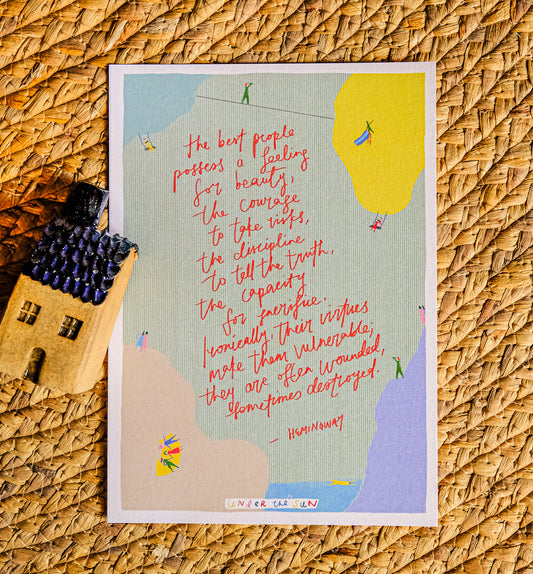 the best people
possess a feeling
for beauty,
the courage
to take risks,
the discipline
to tell the truth,
the capacity
for sacrifice.
Ironically, their virtues
make them vulnerable;
they are often wounded,
sometimes destroyed.
— HEMINGWAY
UNDER the SUN